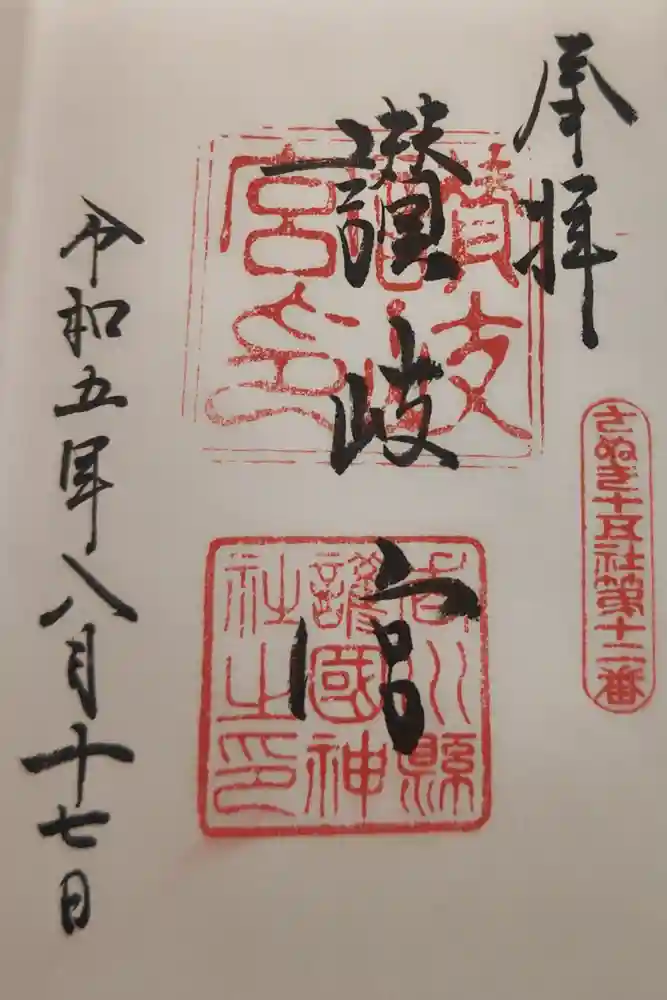 奉拝
さぬき十五社第十二番
讃岐宮
讃岐宮印
香川縣護國神社之印
令和五年八月十七日